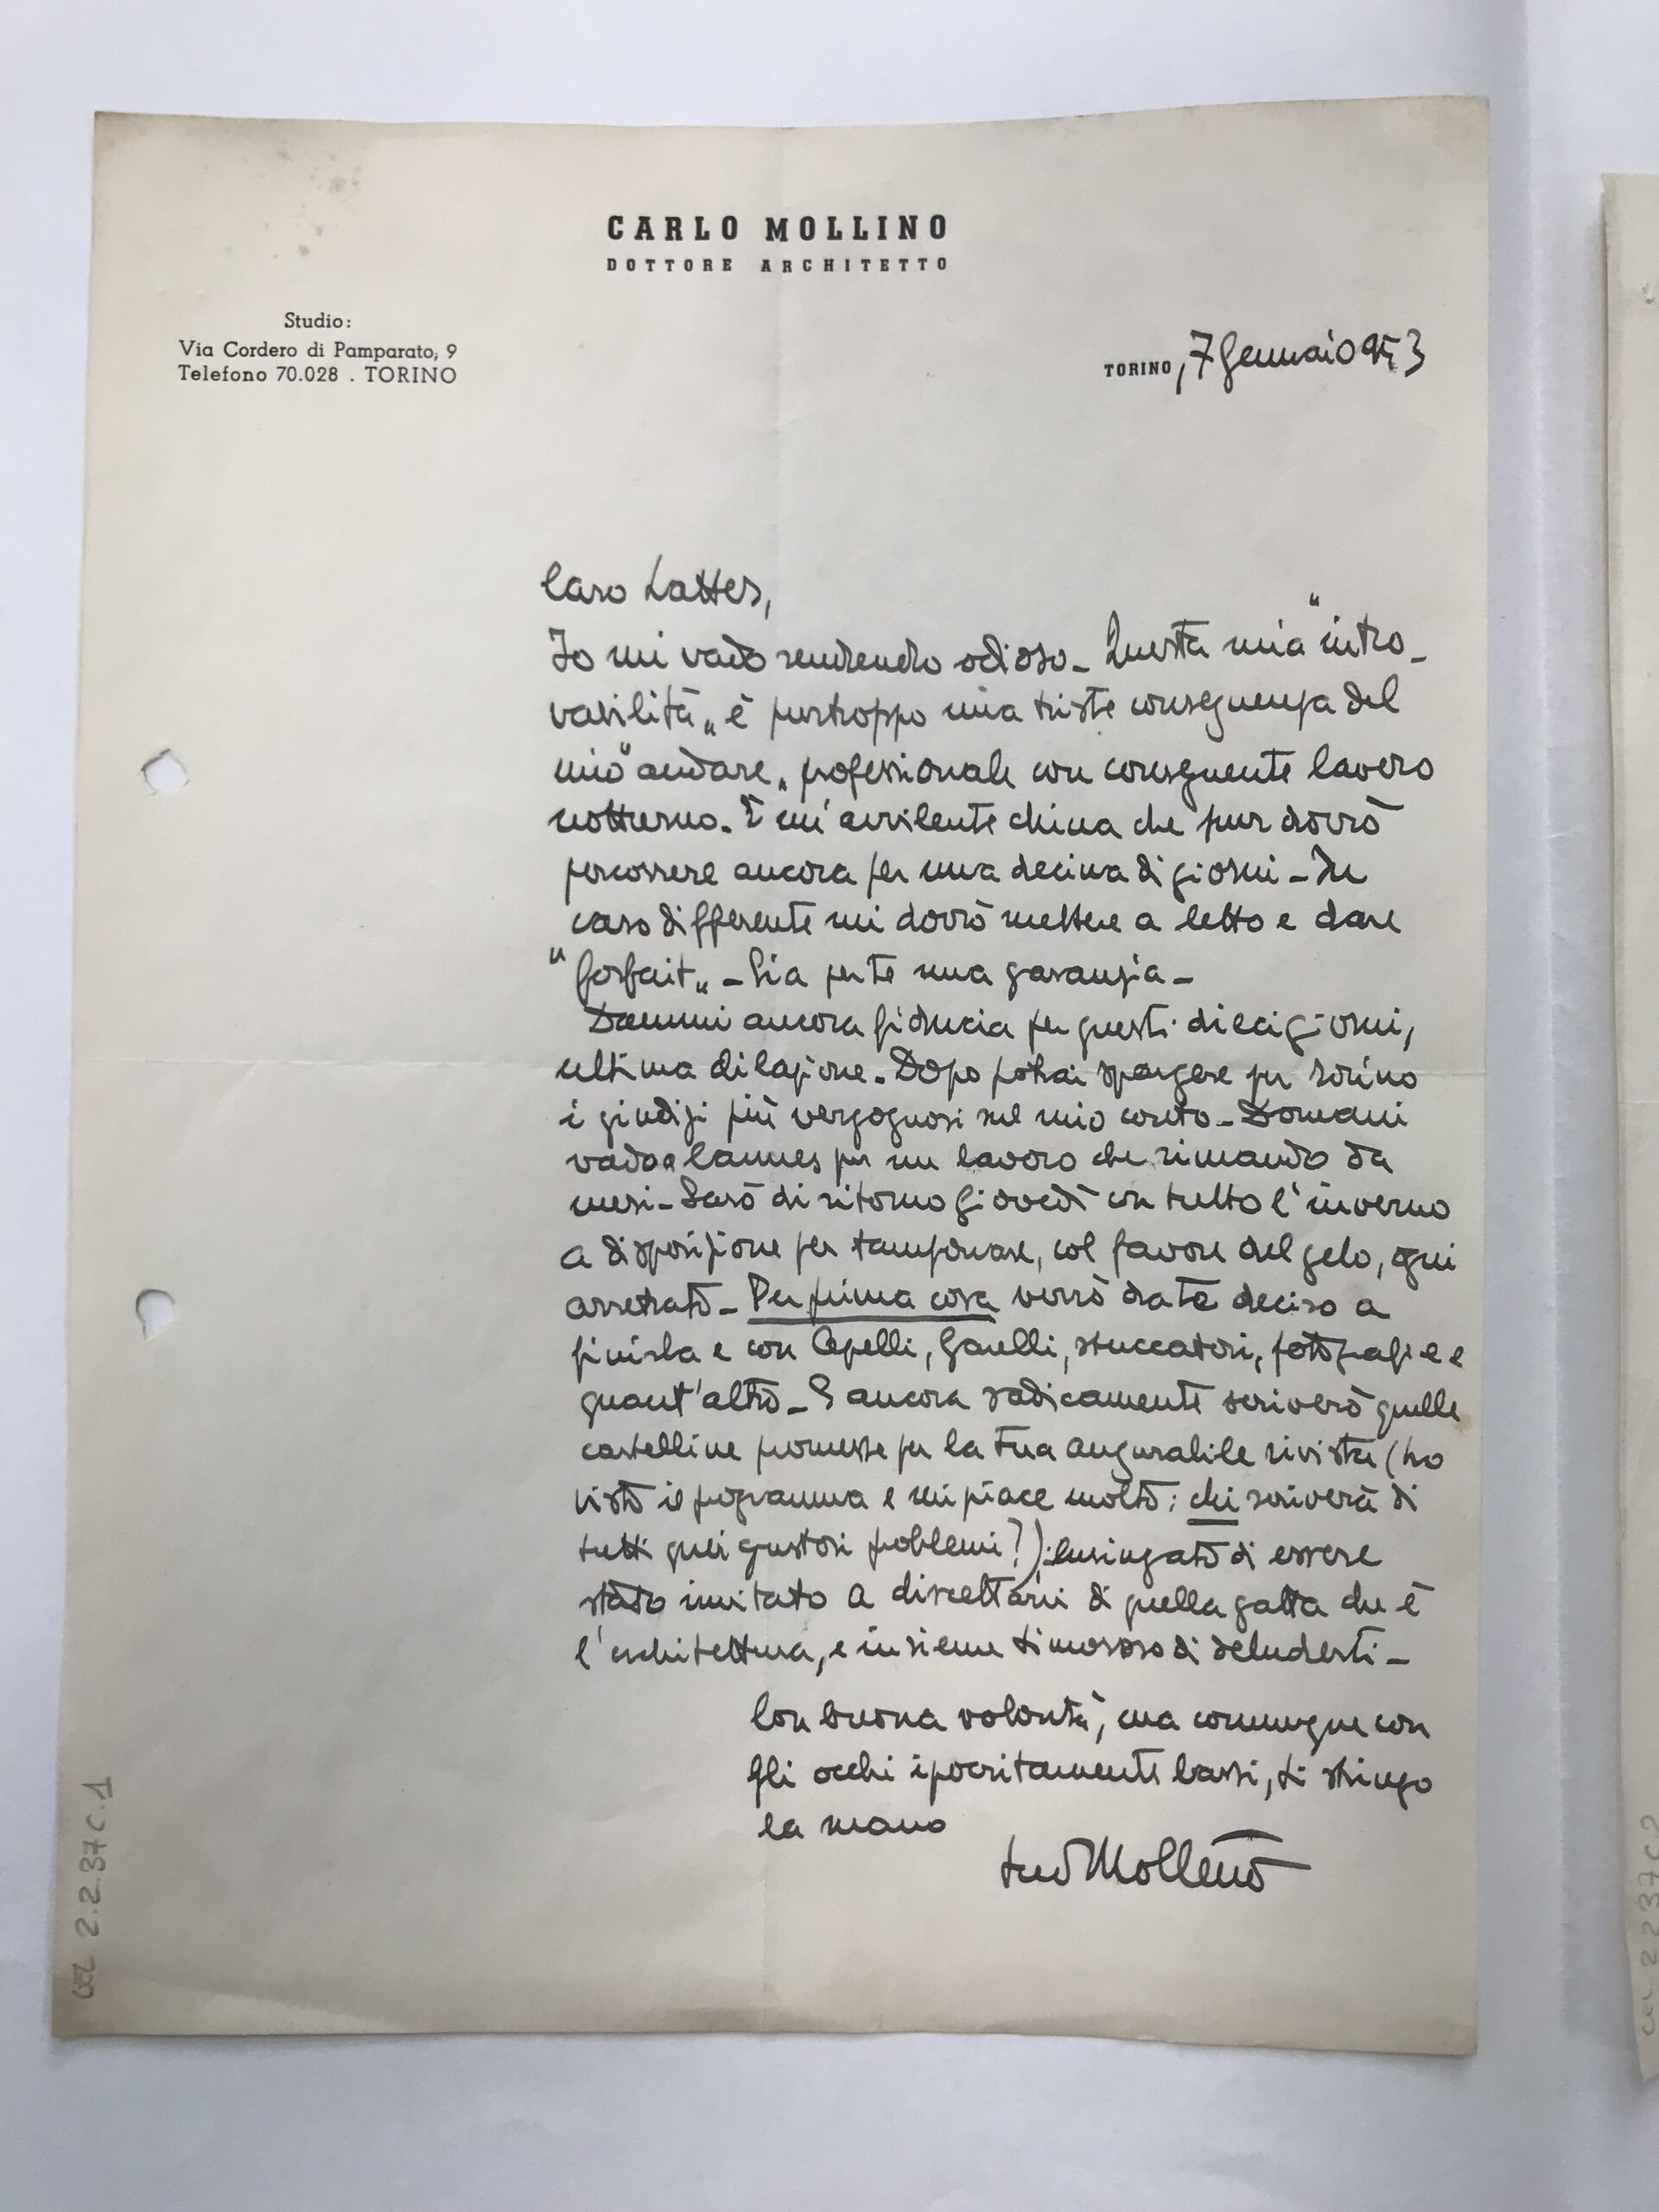 CARLO MOLLINO
DOTTORE ARCHITETTO
Studio:
Via Cordero di Pamparato, 9
Telefono 70.028 . TORINO
TORINO, 7 Gennaio 953
Caro Lattes,
Io mi vado rendendo odioso – Questa mia "intro-
vabilità„ è purtroppo una triste conseguenza del
mio "andare„ professionale con conseguente lavoro
notturno. È un'avvilente china che pur dovrò
percorrere ancora per una decina di giorni – In
caso differente mi dovrò mettere a letto e dare
"forfait„ – Sia per te una garanzia –
Dammi ancora fiducia per questi dieci giorni,
ultima dilazione. Dopo potrai spargere per Torino
i giudizi più vergognosi sul mio conto – Domani
vado a Cannes per un lavoro che rimando da
mesi – Sarò di ritorno Giovedì con tutto l'inverno
a disposizione per tamponare, col favore del gelo, ogni
arretrato – Per prima cosa verrò da te deciso a
finirla e con Apelli, Garelli, stuccatori, fotografie e
quant'altro – E ancora radicamente scriverò quelle
cartelline promesse per la tua augurabile rivista (ho
visto il programma e mi piace molto; chi scriverà di
tutti quei gustosi problemi?): lusingato di essere
stato invitato a discettarvi di quella gatta che è
l'architettura, e insieme timoroso di deluderti –
Con buona volontà, ma comunque con
gli occhi ipocritamente bassi, ti stringo
la mano
tuo Mollino
2.2.37C.1
2237C2